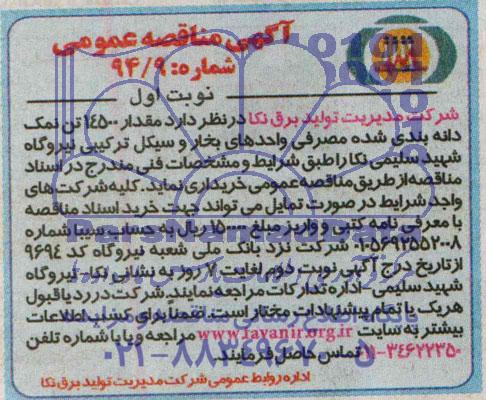 آگهی مناقصه عمومی
شماره: ۹۴/۹
نوبت اول
شرکت مدیریت تولید برق نکا در نظر دارد مقدار ۱۴۵۰۰ تن نمک
دانه بندی شده مصرفی واحدهای بخار و سیکل ترکیبی نیروگاه
شهید سلیمی نکا را طبق شرایط و مشخصات فنی مندرج در اسناد
مناقصه از طریق مناقصه عمومی خریداری نماید. کلیه شرکت های
واجد شرایط در صورت تمایل می تواند جهت خرید اسناد مناقصه
با معرفی نامه کتبی و واریز مبلغ ۱۵۰۰۰۰ ریال به حساب سیبا شماره
۰۱۰۵۶۹۲۵۵۲۰۰۸ شرکت نزد بانک ملی شعبه نیروگاه کد ۹۶۹۴
از تاریخ درج آگهی نوبت دوم لغایت ۷ روز به نشانی نکا- نیروگاه
شهید سلیمی - اداره تدارکات مراجعه نمایند. شرکت در رد یا قبول
هر یک یا تمام پیشنهادات مختار است. ضمناً برای کسب اطلاعات
بیشتر به سایت www.tavanir.org.ir مراجعه و یا با شماره تلفن
۰۱۱-۳۴۶۲۲۳۵۰ تماس حاصل فرمایند.
اداره روابط عمومی شرکت مدیریت تولید برق نکا
ParsNamadData
۰۲۱-۸۸۳۴۹۶۷۰-۵